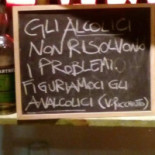 GLI ALCOLICI
NON RISOLVONO
I PROBLEMI.
FIGURIAMOCI GLI
ANALCOLICI